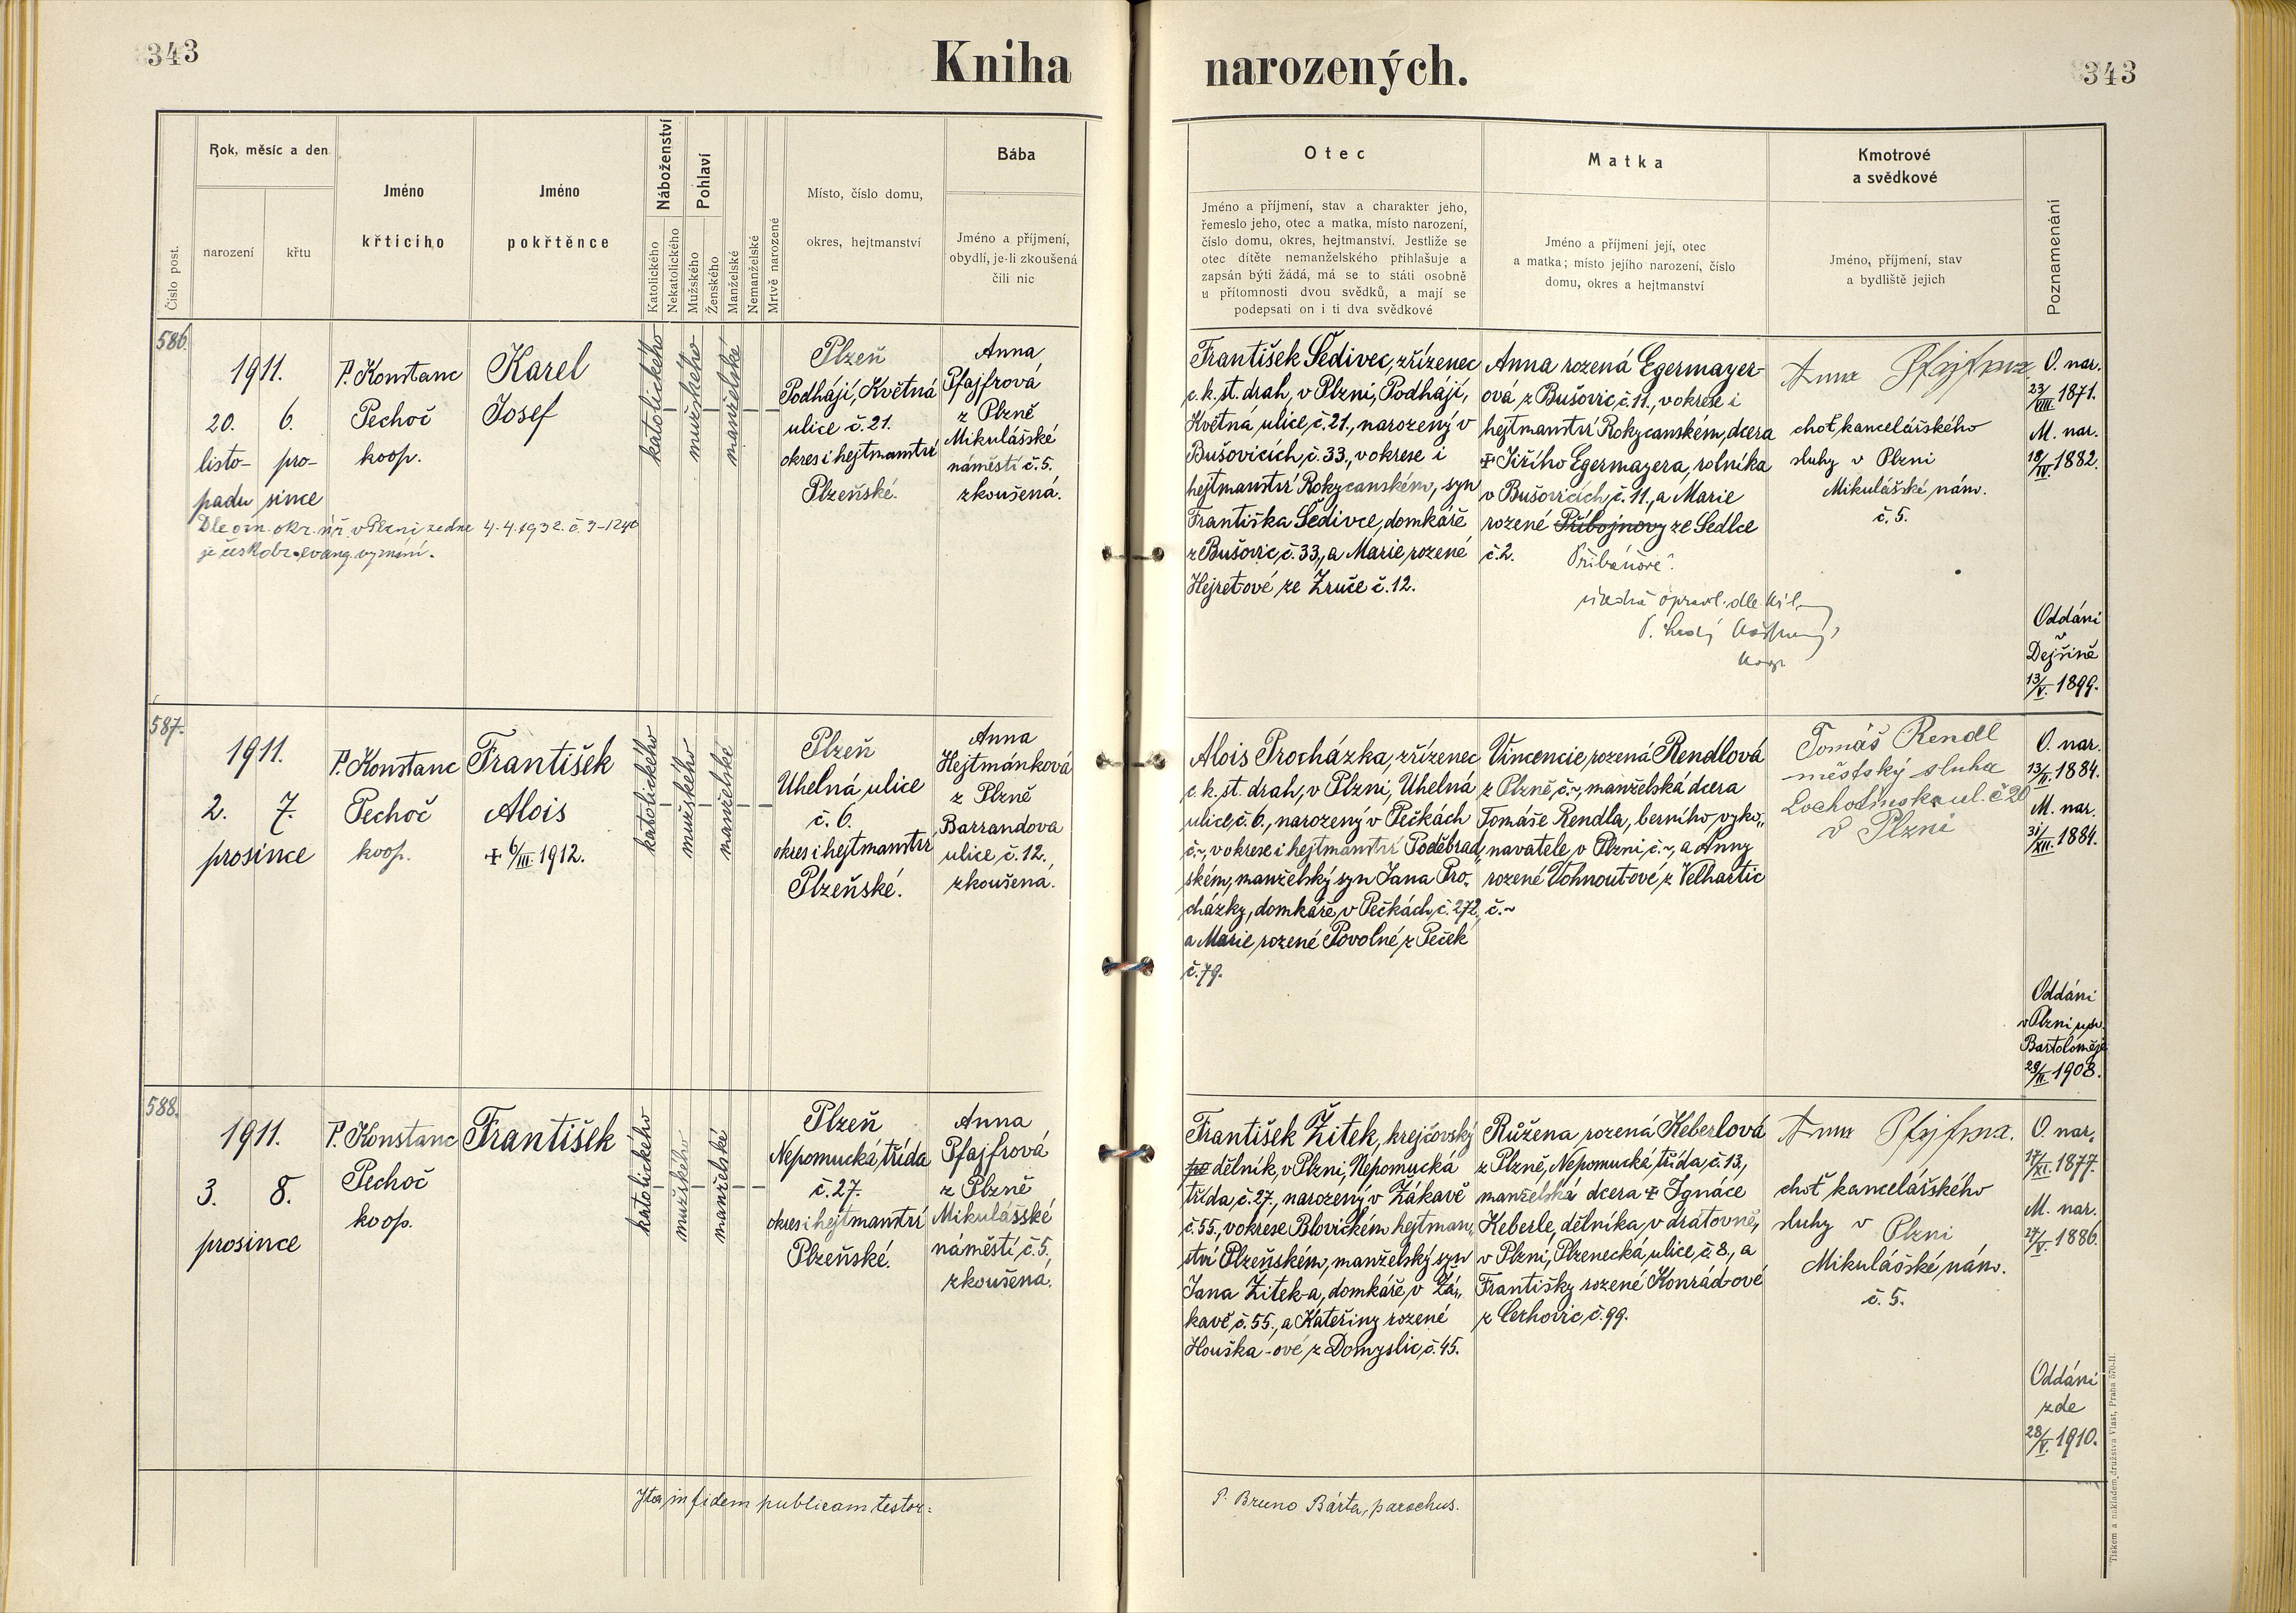 343
Kniha narozených.
343
Číslo post.
Rok, měsíc a den
narození
křtu
Jméno
křticího
Jméno
pokřtěnce
Náboženství
Katolického
Nekatolického
Pohlaví
Mužského
Ženského
Manželské
Nemanželské
Mrtvě narozené
Místo, číslo domu,
okres, hejtmanství
Bába
Jméno a příjmení,
obydlí, je-li zkoušená
čili nic
Otec
Jméno a příjmení, stav a charakter jeho,
řemeslo jeho, otec a matka, místo narození,
číslo domu, okres, hejtmanství. Jestliže se
otec dítěte nemanželského přihlašuje a
zapsán býti žádá, má se to státi osobně
u přítomnosti dvou svědků, a mají se
podepsati on i ti dva svědkové
Matka
Jméno a příjmení její, otec
a matka; místo jejího narození, číslo
domu, okres a hejtmanství
Kmotrové
a svědkové
Jméno, příjmení, stav
a bydliště jejich
Poznamenání
586.
1911.
20. 6.
listo- pro-
padu since
P. Konstanc
Pechoč
koop.
Karel
Josef
katolického
mužského
manželské
Plzeň
Podhájí, Květná
ulice č. 21.
okres i hejtmanství
Plzeňské.
Anna
Pfajfrová
z Plzně
Mikulášské
náměstí č. 5.
zkoušená.
Dle ozn. okr. úř. v Plzni ze dne 4.4.1932. č. 3-1240
je českobr. evang. vyznání.
František Šedivec, zřízenec
c. k. st. drah, v Plzni, Podhájí,
Květná ulice, č. 21., narozený v
Bušovicích, č. 33., v okrese i
hejtmanství Rokycanském, syn
Františka Šedivce, domkáře
z Bušovic, č. 33., a Marie rozené
Hejret-ové ze Zruče č. 12.
Anna rozená Egermayer-
ová z Bušovic, č. 11., v okrese i
hejtmanství Rokycanském, dcera
+ Jiřího Egermayera, rolníka
v Bušovicích, č. 11., a Marie
rozené Příbojnovy ze Sedlce
č. 2. Přibáňové.
Anna Pfajfrová
choť kancelářského
sluhy v Plzni
Mikulášské nám.
č. 5.
O. nar.
23/VIII. 1871.
M. nar.
18/IV. 1882.
Oddáni
v
Dejšině
13/V. 1899.
587.
1911.
2. 7.
prosince
P. Konstanc
Pechoč
koop.
František
Alois
+ 6/III 1912.
katolického
mužského
manželské
Plzeň
Uhelná ulice
č. 6.
okres i hejtmanství
Plzeňské.
Anna
Hejtmánková
z Plzně
Barrandova
ulice, č. 12.
zkoušená.
Alois Procházka, zřízenec
c. k. st. drah, v Plzni, Uhelná
ulice, č. 6., narozený v Pečkách
č. ~, v okrese i hejtmanství Poděbrad„
ském, manželský syn Jana Pro„
cházky, domkáře, v Pečkách, č. 272,
a Marie rozené Povolné, z Peček
č. 79.
Vincencie rozená Rendlová
z Plzně, č. ~, manželská dcera
Tomáše Rendla, berního vyko„
navatele, v Plzni, č. ~, a Anny
rozené Vohnout-ové z Velhartic
č. ~
Tomáš Rendl
městský sluha
Lochotínská ul. č 20
v Plzni
O. nar.
13/II. 1884.
M. nar.
31/XII. 1884.
Oddáni
v Plzni u sv.
Bartoloměje
29/II. 1908.
588.
1911.
3. 8.
prosince
P. Konstanc
Pechoč
koop.
František
katolického
mužského
manželské
Plzeň
Nepomucká třída
č. 27.
okres i hejtmanství
Plzeňské.
Anna
Pfajfrová
z Plzně
Mikulášské
náměstí, č. 5.
zkoušená.
František Žitek, krejčovský
dělník, v Plzni, Nepomucká
třída, č. 27., narozený v Žákavě
č. 55., v okrese Blovickém, hejtman„
ství Plzeňském, manželský syn
Jana Žitek-a, domkáře, v Žá„
kavě, č. 55., a Kateřiny rozené
Houška-ové z Domyslic, č. 45.
Růžena rozená Keberlová
z Plzně, Nepomucká třída, č. 13.,
manželská dcera + Ignáce
Keberle, dělníka, v drátovně,
v Plzni, Plzenecká ulice, č. 8., a
Františky rozené Konrád-ové
z Cerhovic, č. 99.
Anna Pfajfrová.
choť kancelářského
sluhy v Plzni
Mikulášské nám.
č. 5.
O. nar.
17/XI. 1877.
M. nar.
27/V. 1886.
Oddáni
zde
28/V. 1910.
Ita in fidem publicam testor:
P. Bruno Bárta, parochus.
Tiskem a nákladem družstva Vlast, Praha 570-II.